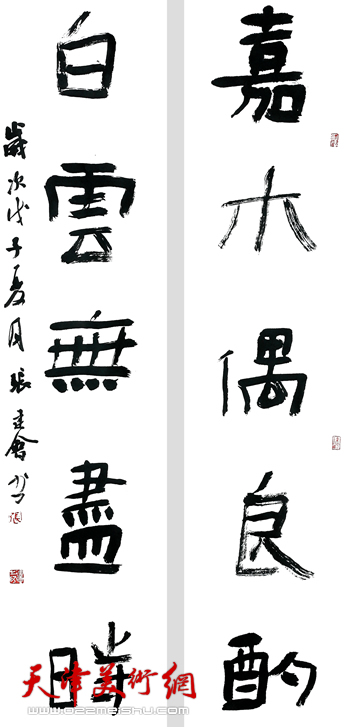 嘉木偶良酌
白雲無盡時
歲次戊子夏月張建會書
天津美術網
www.022meishu.com